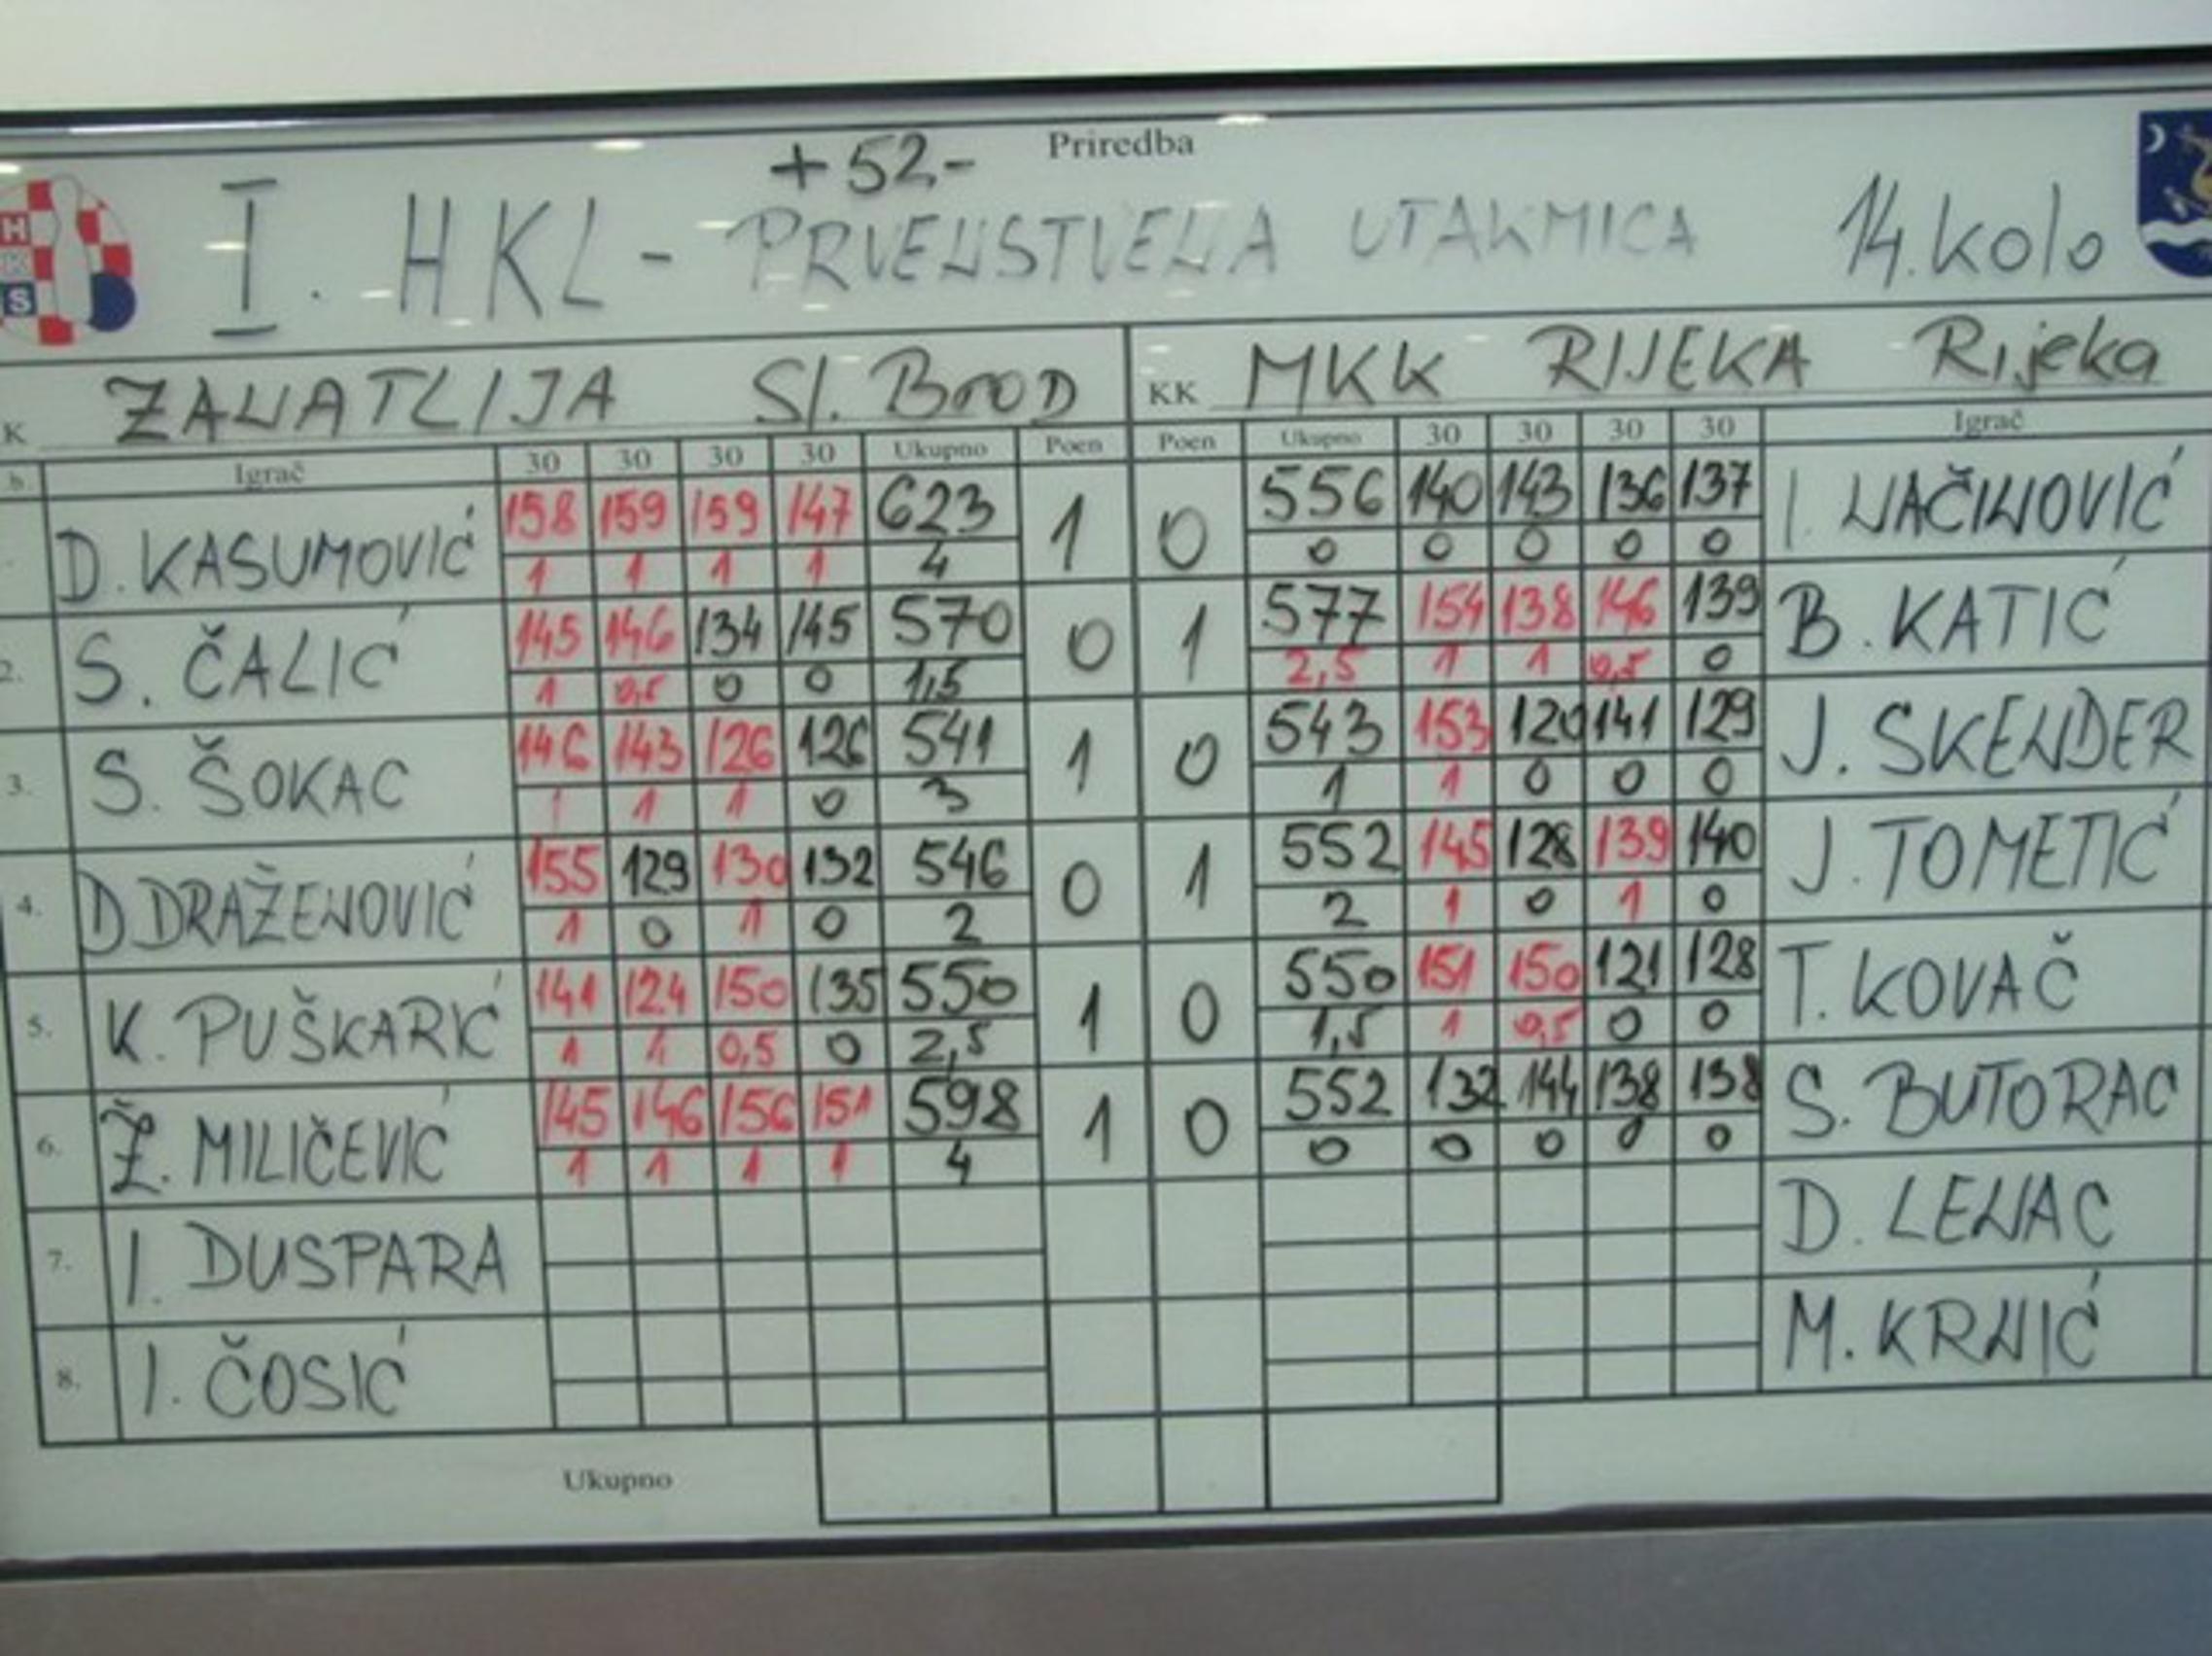 Priredba
+52-
H K S
I. HKL - PRVENSTVENA UTAKMICA 14.kolo
K ZANATLIJA Sl. BroD KK MKK RIJEKA Rijeka
Igrač 30 30 30 30 Ukupno Poen Poen Ukupno 30 30 30 30 Igrač
D. KASUMOVIĆ 158 159 159 147 623 1 0 556 140 143 136 137 I. NAČINOVIĆ
1 1 1 1 4 0 0 0 0 0
2. S. ČALIĆ 145 146 134 145 570 0 1 577 154 138 146 139 B. KATIĆ
1 0,5 0 0 1,5 2,5 1 1 0,5 0
3. S. ŠOKAC 146 143 126 126 541 1 0 543 153 120 141 129 J. SKENDER
1 1 1 0 3 1 1 0 0 0
4. D. DRAŽENOVIĆ 155 129 130 132 546 0 1 552 145 128 139 140 J. TOMETIĆ
1 0 1 0 2 2 1 0 1 0
5. K. PUŠKARIĆ 141 124 150 135 550 1 0 550 151 150 121 128 T. KOVAČ
1 1 0,5 0 2,5 1,5 1 0,5 0 0
6. Ž. MILIČEVIĆ 145 146 156 151 598 1 0 552 132 144 138 138 S. BUTORAC
1 1 1 1 4 0 0 0 0 0
7. I. DUSPARA D. LENAC
8. I. ČOSIĆ M. KRNIĆ
Ukupno